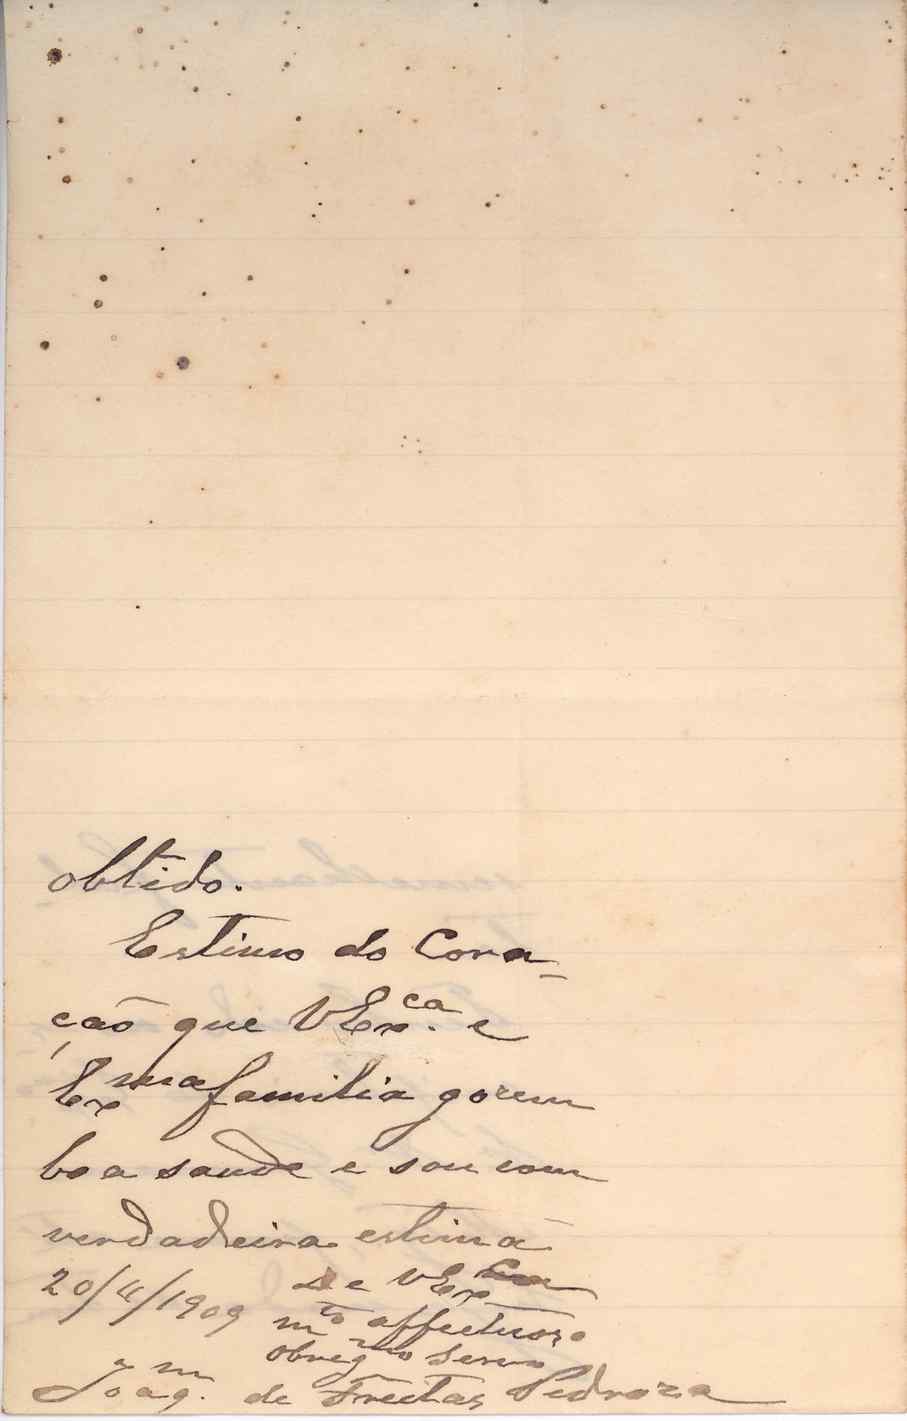 obtido.
Estimo do Cora-
ção que VEx.ca e
Exma familia gozem
boa saude e sou com
verdadeira estima
De VExcia
20/4/1909 mto affectuozo
obregmo servo
Joaqm. de Freitas Pedroza